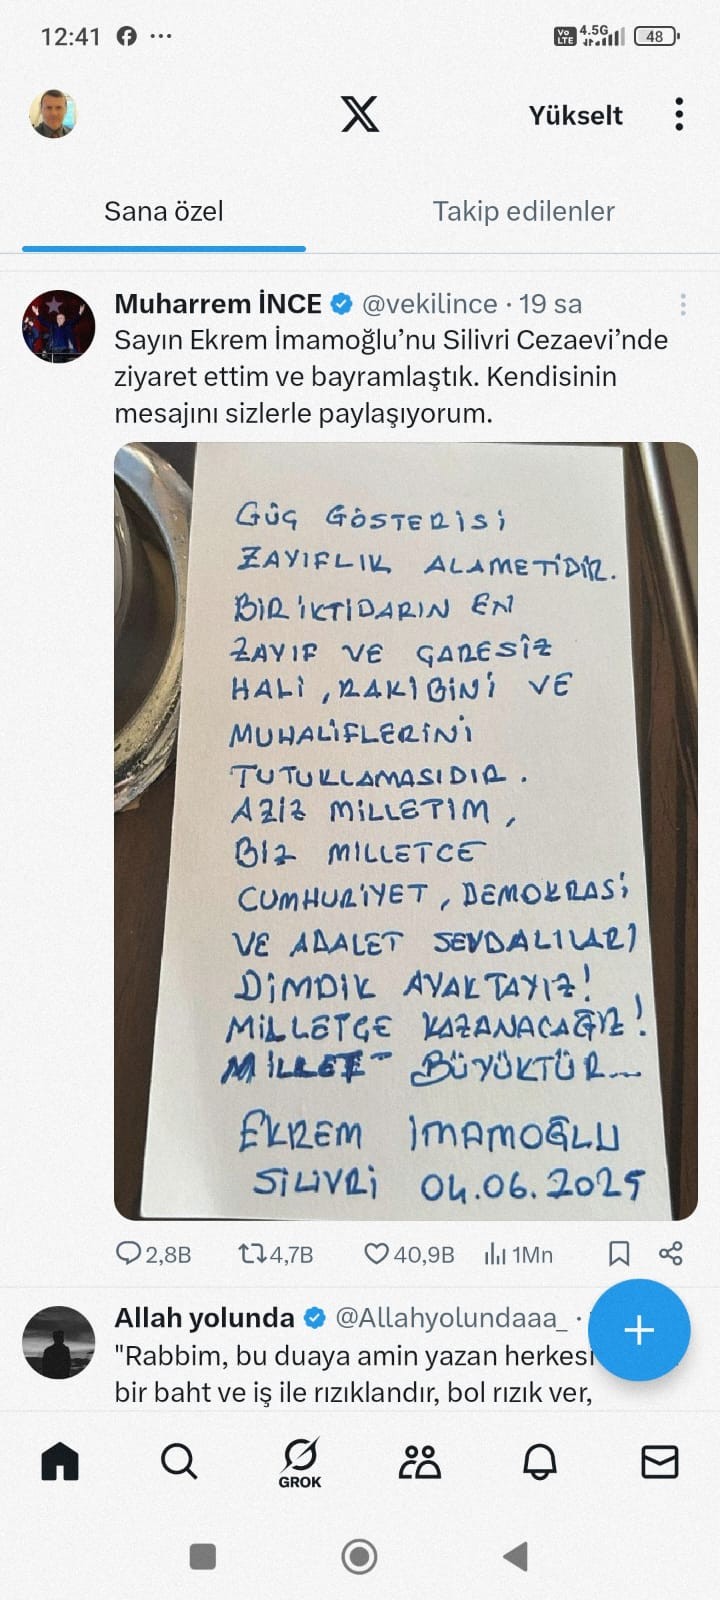 12:41
Vo LTE 4.5G 48
X Yükselt
Sana özel Takip edilenler
Muharrem İNCE @vekilince · 19 sa
Sayın Ekrem İmamoğlu'nu Silivri Cezaevi'nde
ziyaret ettim ve bayramlaştık. Kendisinin
mesajını sizlerle paylaşıyorum.
GÜÇ GÖSTERİSİ
ZAYIFLIK ALAMETİDİR.
BİR İKTİDARIN EN
ZAYIF VE ÇARESİZ
HALİ, RAKİBİNİ VE
MUHALİFLERİNİ
TUTUKLAMASIDIR.
AZİZ MİLLETİM,
BİZ MİLLETCE
CUMHURİYET, DEMOKRASİ
VE ADALET SEVDALILARI
DİMDİK AYAKTAYIZ!
MİLLETÇE KAZANACAĞIZ!
MİLLET BÜYÜKTÜR...
EKREM İMAMOĞLU
SİLİVRİ 04.06.2025
2,8B 4,7B 40,9B 1Mn
Allah yolunda @Allahyolundaaa_ ·
"Rabbim, bu duaya amin yazan herkesi
bir baht ve iş ile rızıklandır, bol rızık ver,
GROK